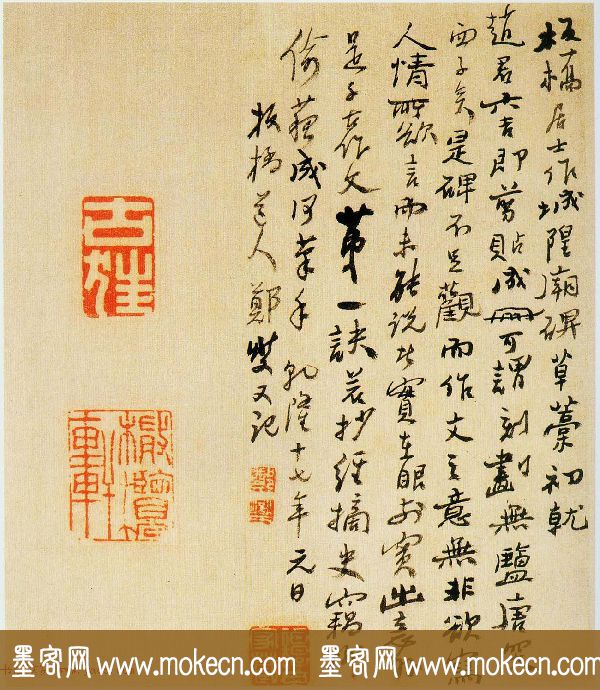 板橋居士作城隍廟碑草藁初就
趙君六吉即剪貼成冊可謂刻畫無鹽唐突
西子矣是碑不足觀而作文之意無非欲寫
人情所欲言而未能說此實在眼前實出意
是千古作文第一訣若抄經摘史竊
偷蘇成何筆手乾隆十七年元日
板橋道人鄭燮又記
墨客网www.mokecn.com 墨客网www.mokecn.com